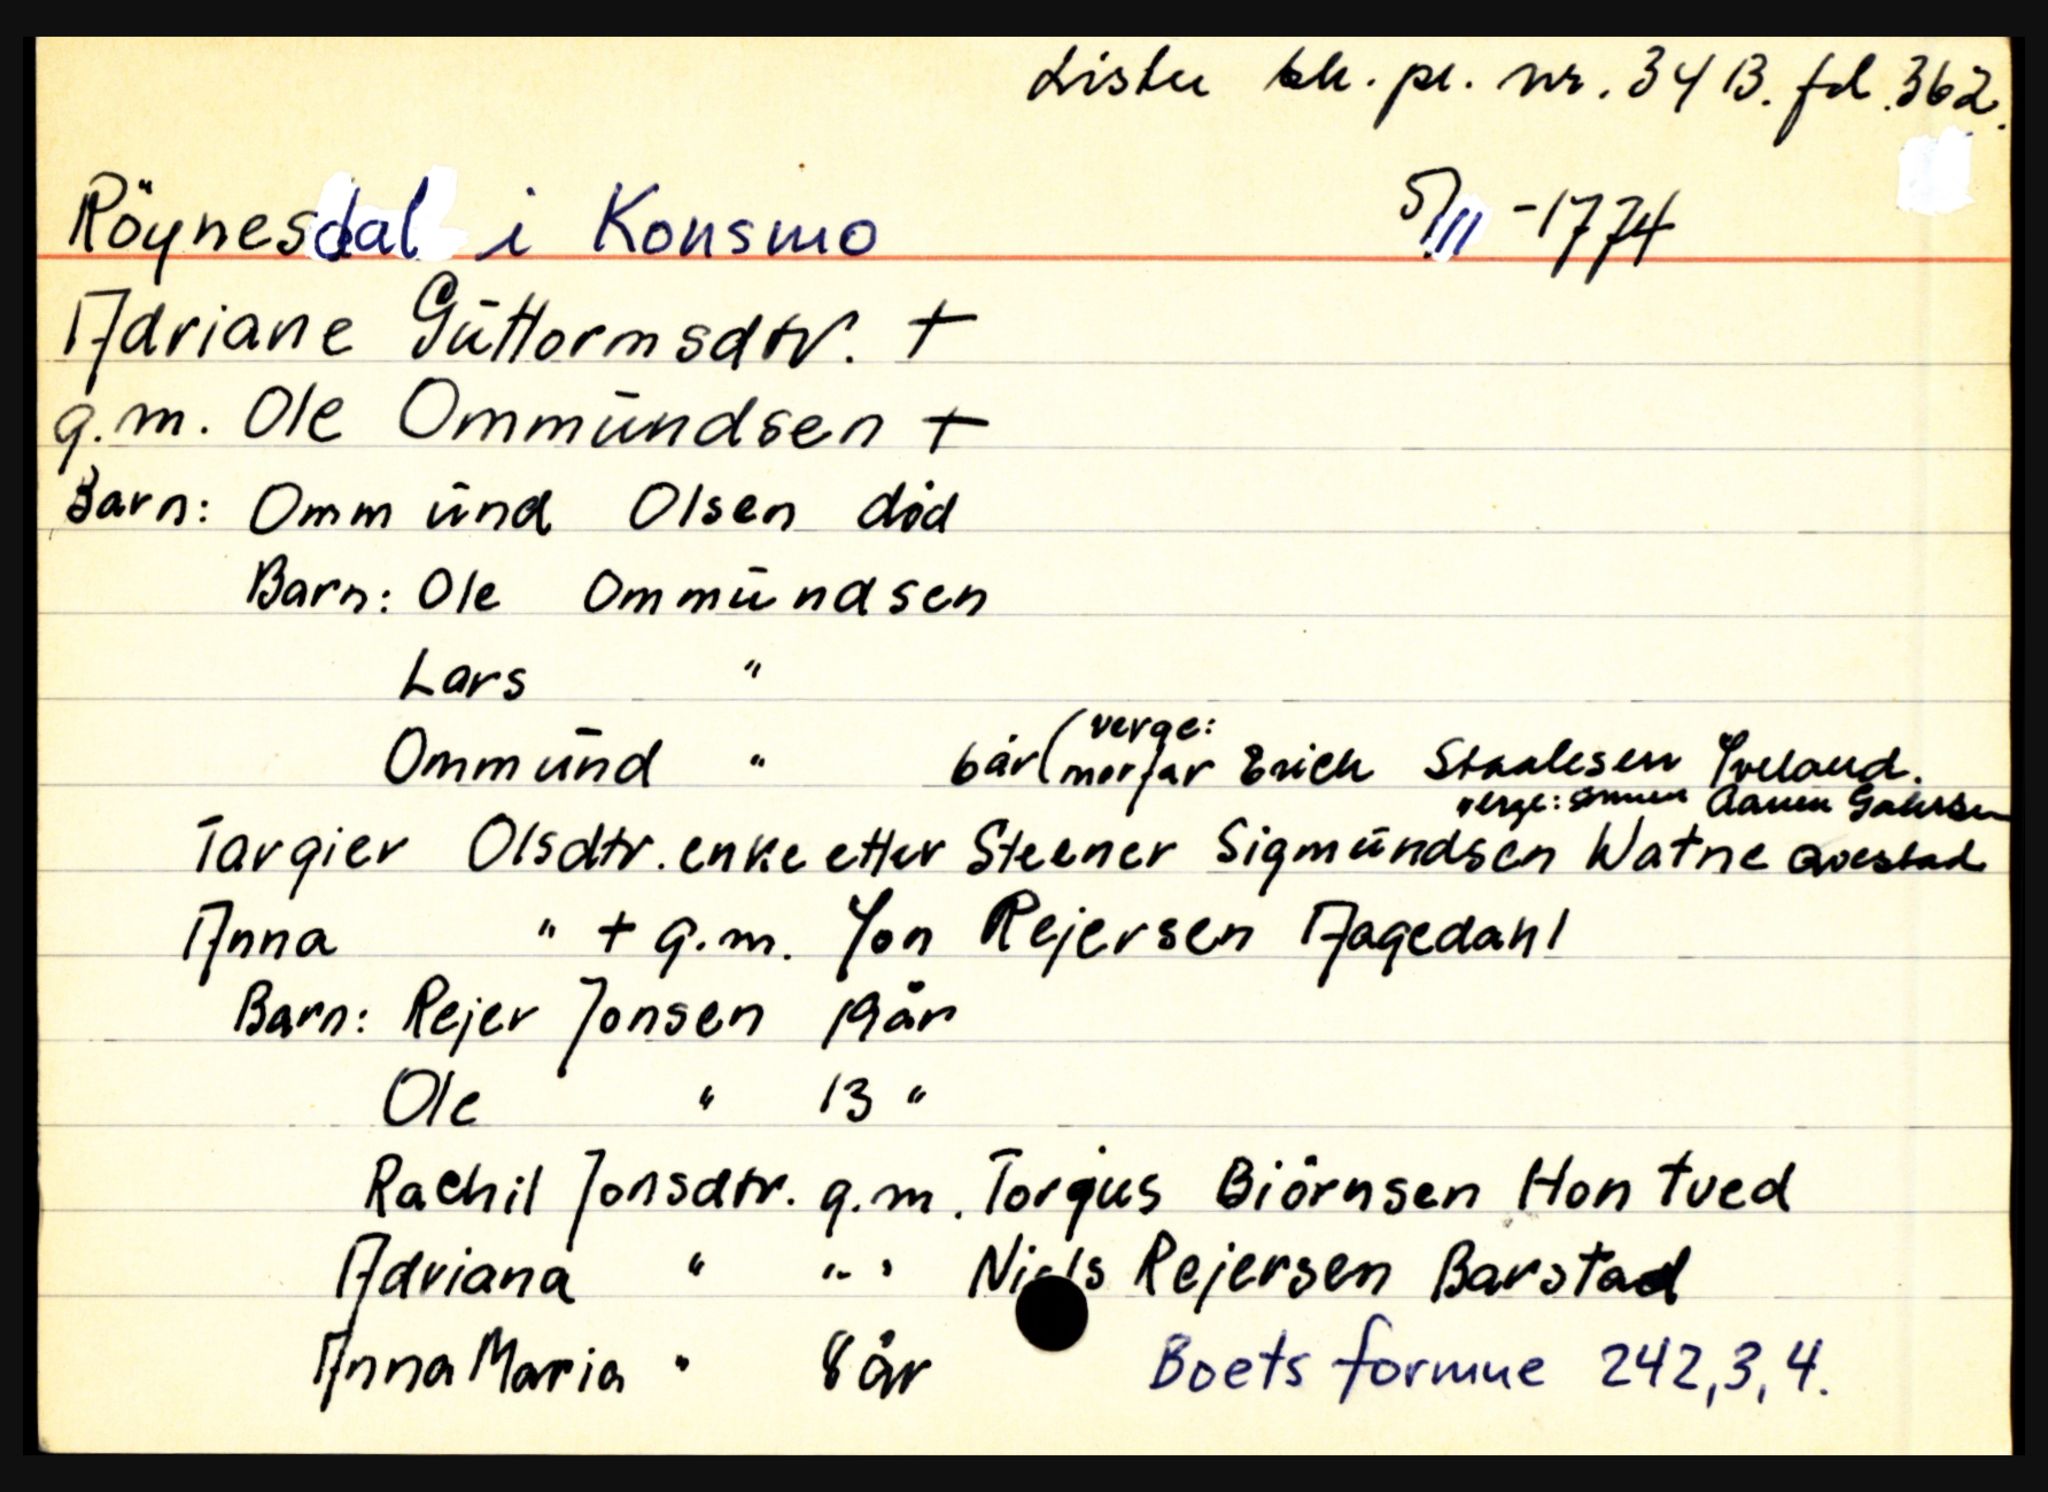 Lister sk. pr. nr. 34 B. fol. 362.
Röynesdal i Konsmo 5/11 -1774
Adriane Gūttormsdtr. +
g.m. Ole Ommūndsen +
Barn: Ommūnd Olsen död
Barn: Ole Ommūndsen
Lars "
Ommūnd " 6år (verge:
morfar Erich Staalesen Yveland.
verge: Aanen
Targier Olsdtr. enke etter Steener Sigmūndsen Watne Qvestad
Anna " + g.m. Jon Rejersen Aagedahl
Barn: Rejer Jonsen 19år
Ole " 13 "
Rachil Jonsdtr. g.m. Torgus Biörnsen Hontved
Adriana " " " Niels Rejersen Barstad
Anna Maria " 8 år Boets formue 242,3,4.